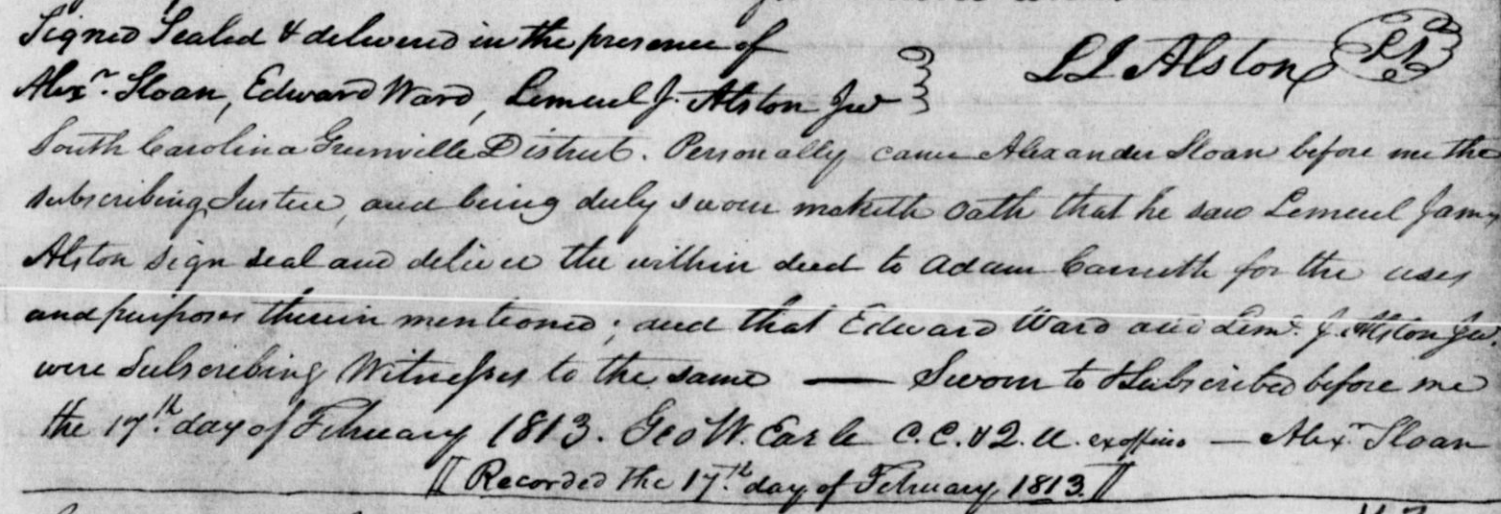 Signed Sealed & delivered in the presence of
L J Alston LS
Alexr. Sloan, Edward Ward, Lemuel J. Alston Jur
South Carolina Greenville District. Personally came Alexander Sloan before me the
subscribing Justice, and being duly sworn maketh oath that he saw Lemuel James
Alston sign seal and deliver the within deed to Adam Carruth for the uses
and purposes therein mentioned; and that Edward Ward and Leml. J. Alston Jur.
were Subscribing Witnesses to the same — Sworn to & Subscribed before me
the 17th. day of February 1813. Geo W. Earle C.C. & Q. U. ex offico — Alexr Sloan
[[ Recorded the 17th. day of February 1813. ]]